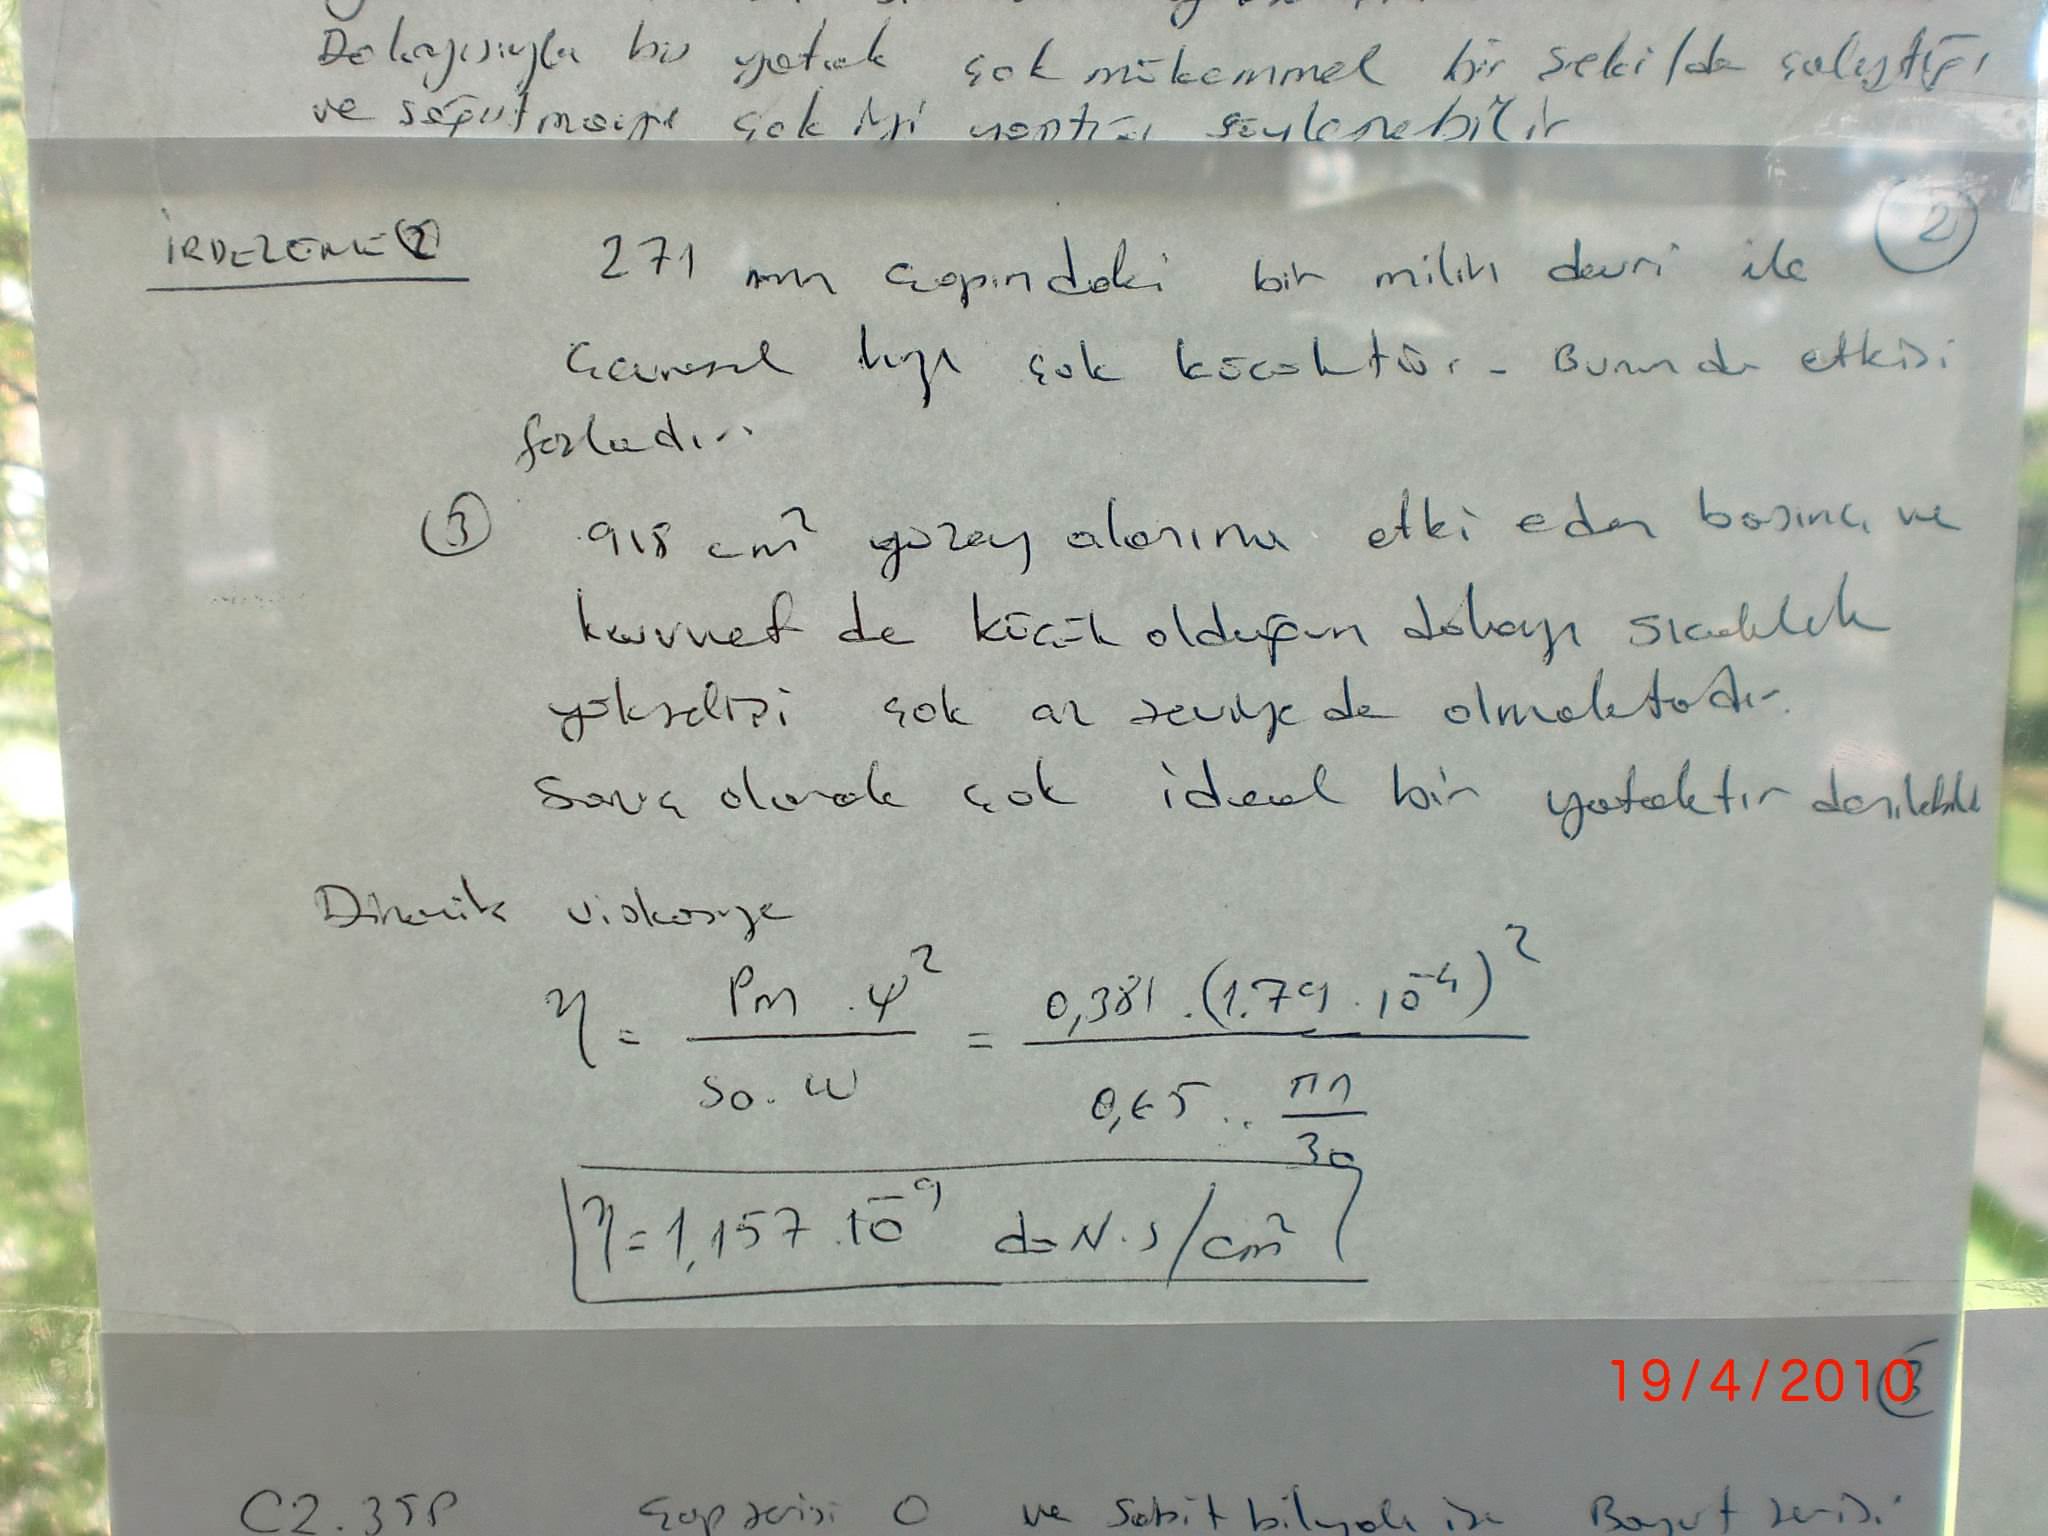 Dolayısıyla bu yatak çok mükemmel bir şekilde çalıştığı
ve soğutmayı çok iyi yaptığı söylenebilir
İRDELEME (2) 271 mm çapındaki bir milin devri ile
(2)
çevresel hızı çok küçüktür. Bunun da etkisi
fazladır.
(3) 918 cm² yüzey alanına etki eden basınç ve
kuvvet de küçük olduğun dolayı sıcaklık
yükselişi çok az seviyede olmaktadır.
Sonuç olarak çok ideal bir yataktır denilebilir
Dinamik viskozite
η = Pm . ψ² / So . ω = 0,381 . (1.79 . 10⁻⁴)² / 0,65 .. πn / 30
η = 1,157 . 10⁻⁹ daN.s/cm²
19/4/2010
(3)
C2.35P Çap serisi 0 ve sabit bilyalı ise Boyut serisi